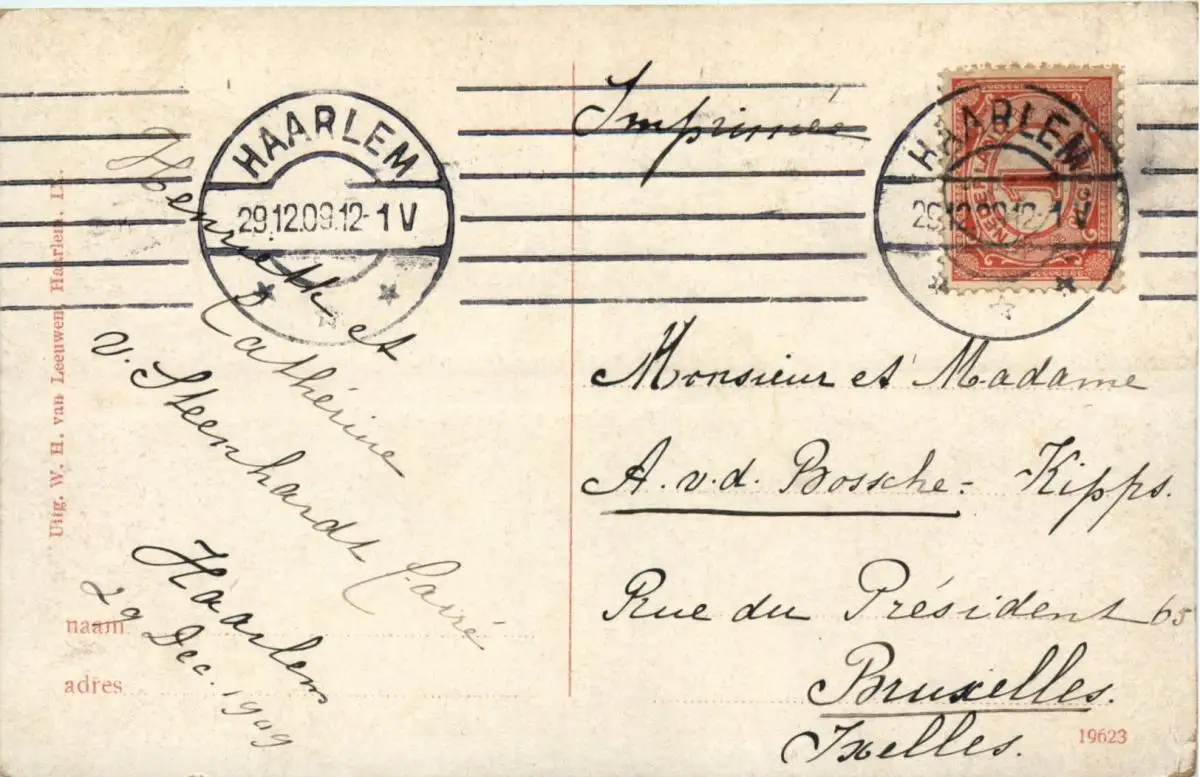 Uitg. W. H. van Leeuwen, Haarlem. IX.
HAARLEM
29.12.09.12-1 V
et
Cathérine
v. Steenhardt Carré
Haarlem
29 Dec. 1909
naam
adres
Imprimée
HAARLEM
29.12.09.12-1 V
NEDERLAND
1
Monsieur et Madame
A. v. d. Bossche - Kipps.
Rue du Président 65
Bruxelles.
Ixelles.
19623